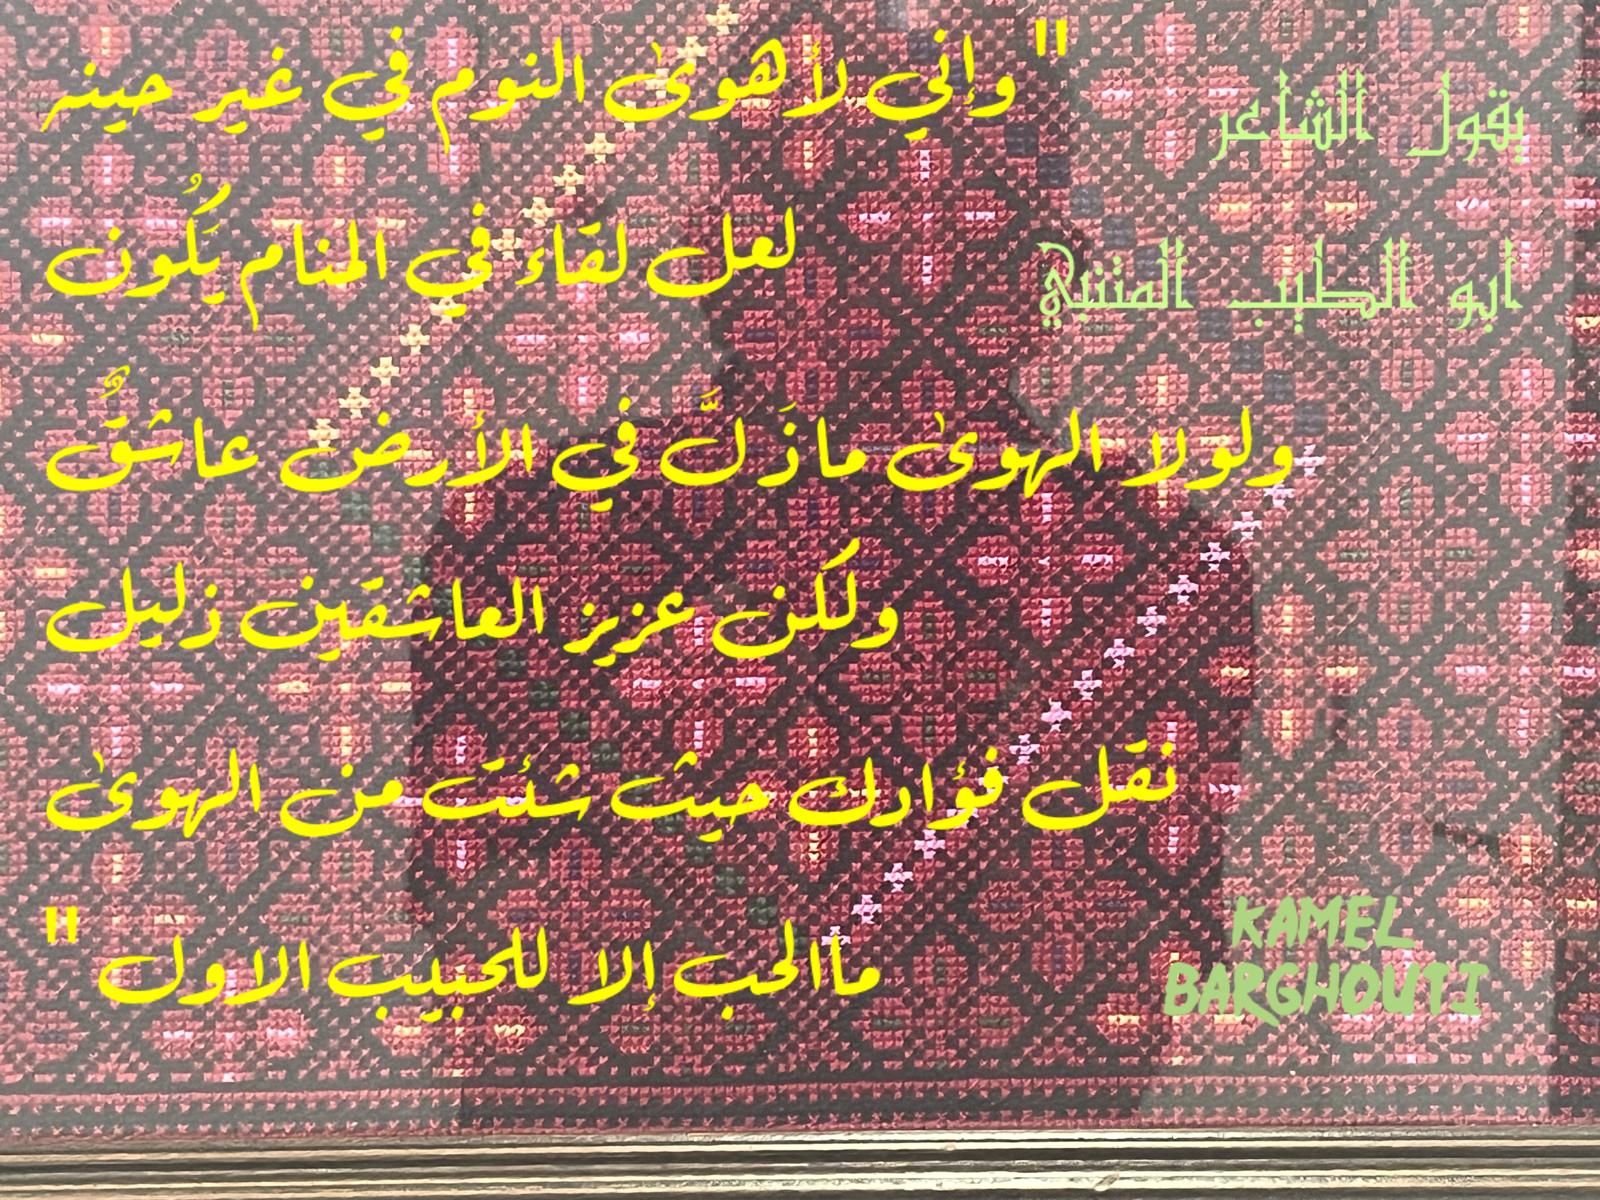 يقول الشاعر
ابو الطيب المتنبي
" وإني لأهوى النوم في غير حينه
لعل لقاء في المنام يَكُون
ولولا الهوى ماذَلَّ في الأرض عاشقٌ
ولكن عزيز العاشقين ذليل
نقل فؤادك حيث شئت من الهوى
ماالحب إلا للحبيب الاول "
KAMEL
BARGHOUTI